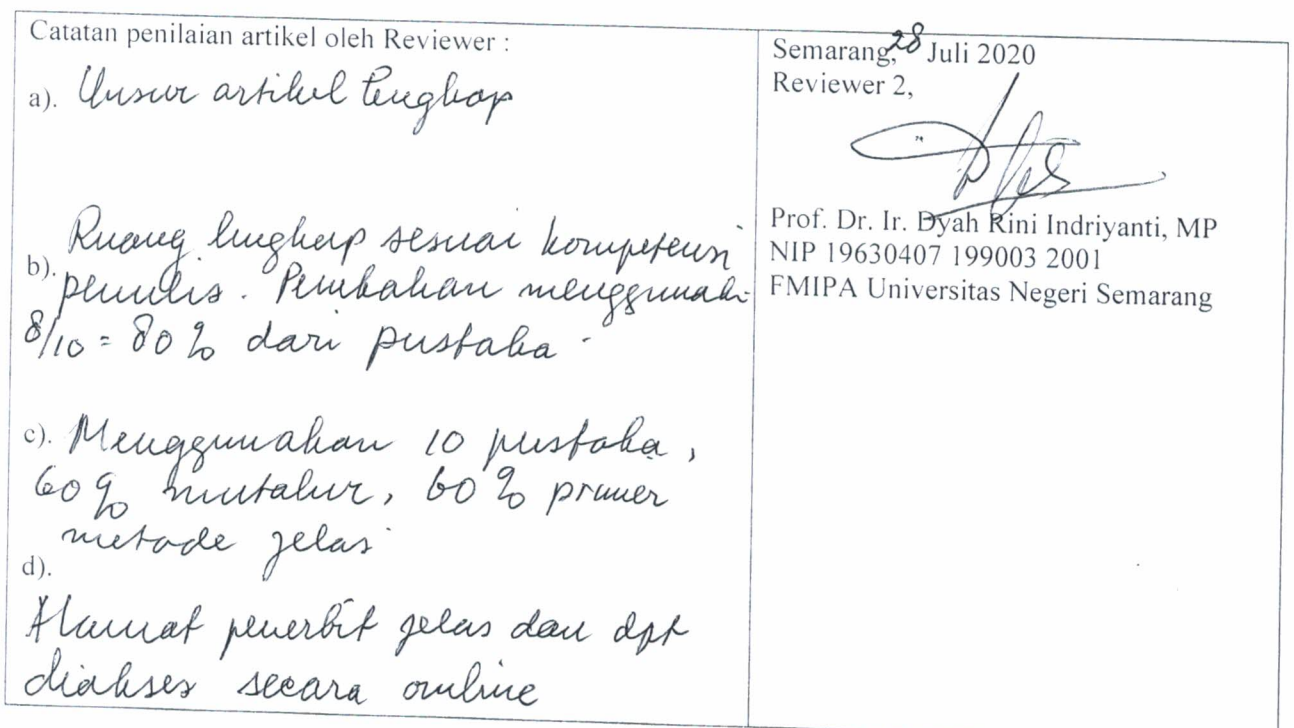 Catatan penilaian artikel oleh Reviewer :
a). Unsur artikel lengkap
b). Ruang lingkup sesuai kompetensi
penulis. Pembahan menggunak
8/10 = 80% dari pustaka
c). Menggunakan 10 pustaka,
60% mutahir, 60% primer
metode jelas
d).
Alamat penerbit jelas dan dpt
diakses secara online
Semarang, 28 Juli 2020
Reviewer 2,
Prof. Dr. Ir. Dyah Rini Indriyanti, MP
NIP 19630407 199003 2001
FMIPA Universitas Negeri Semarang